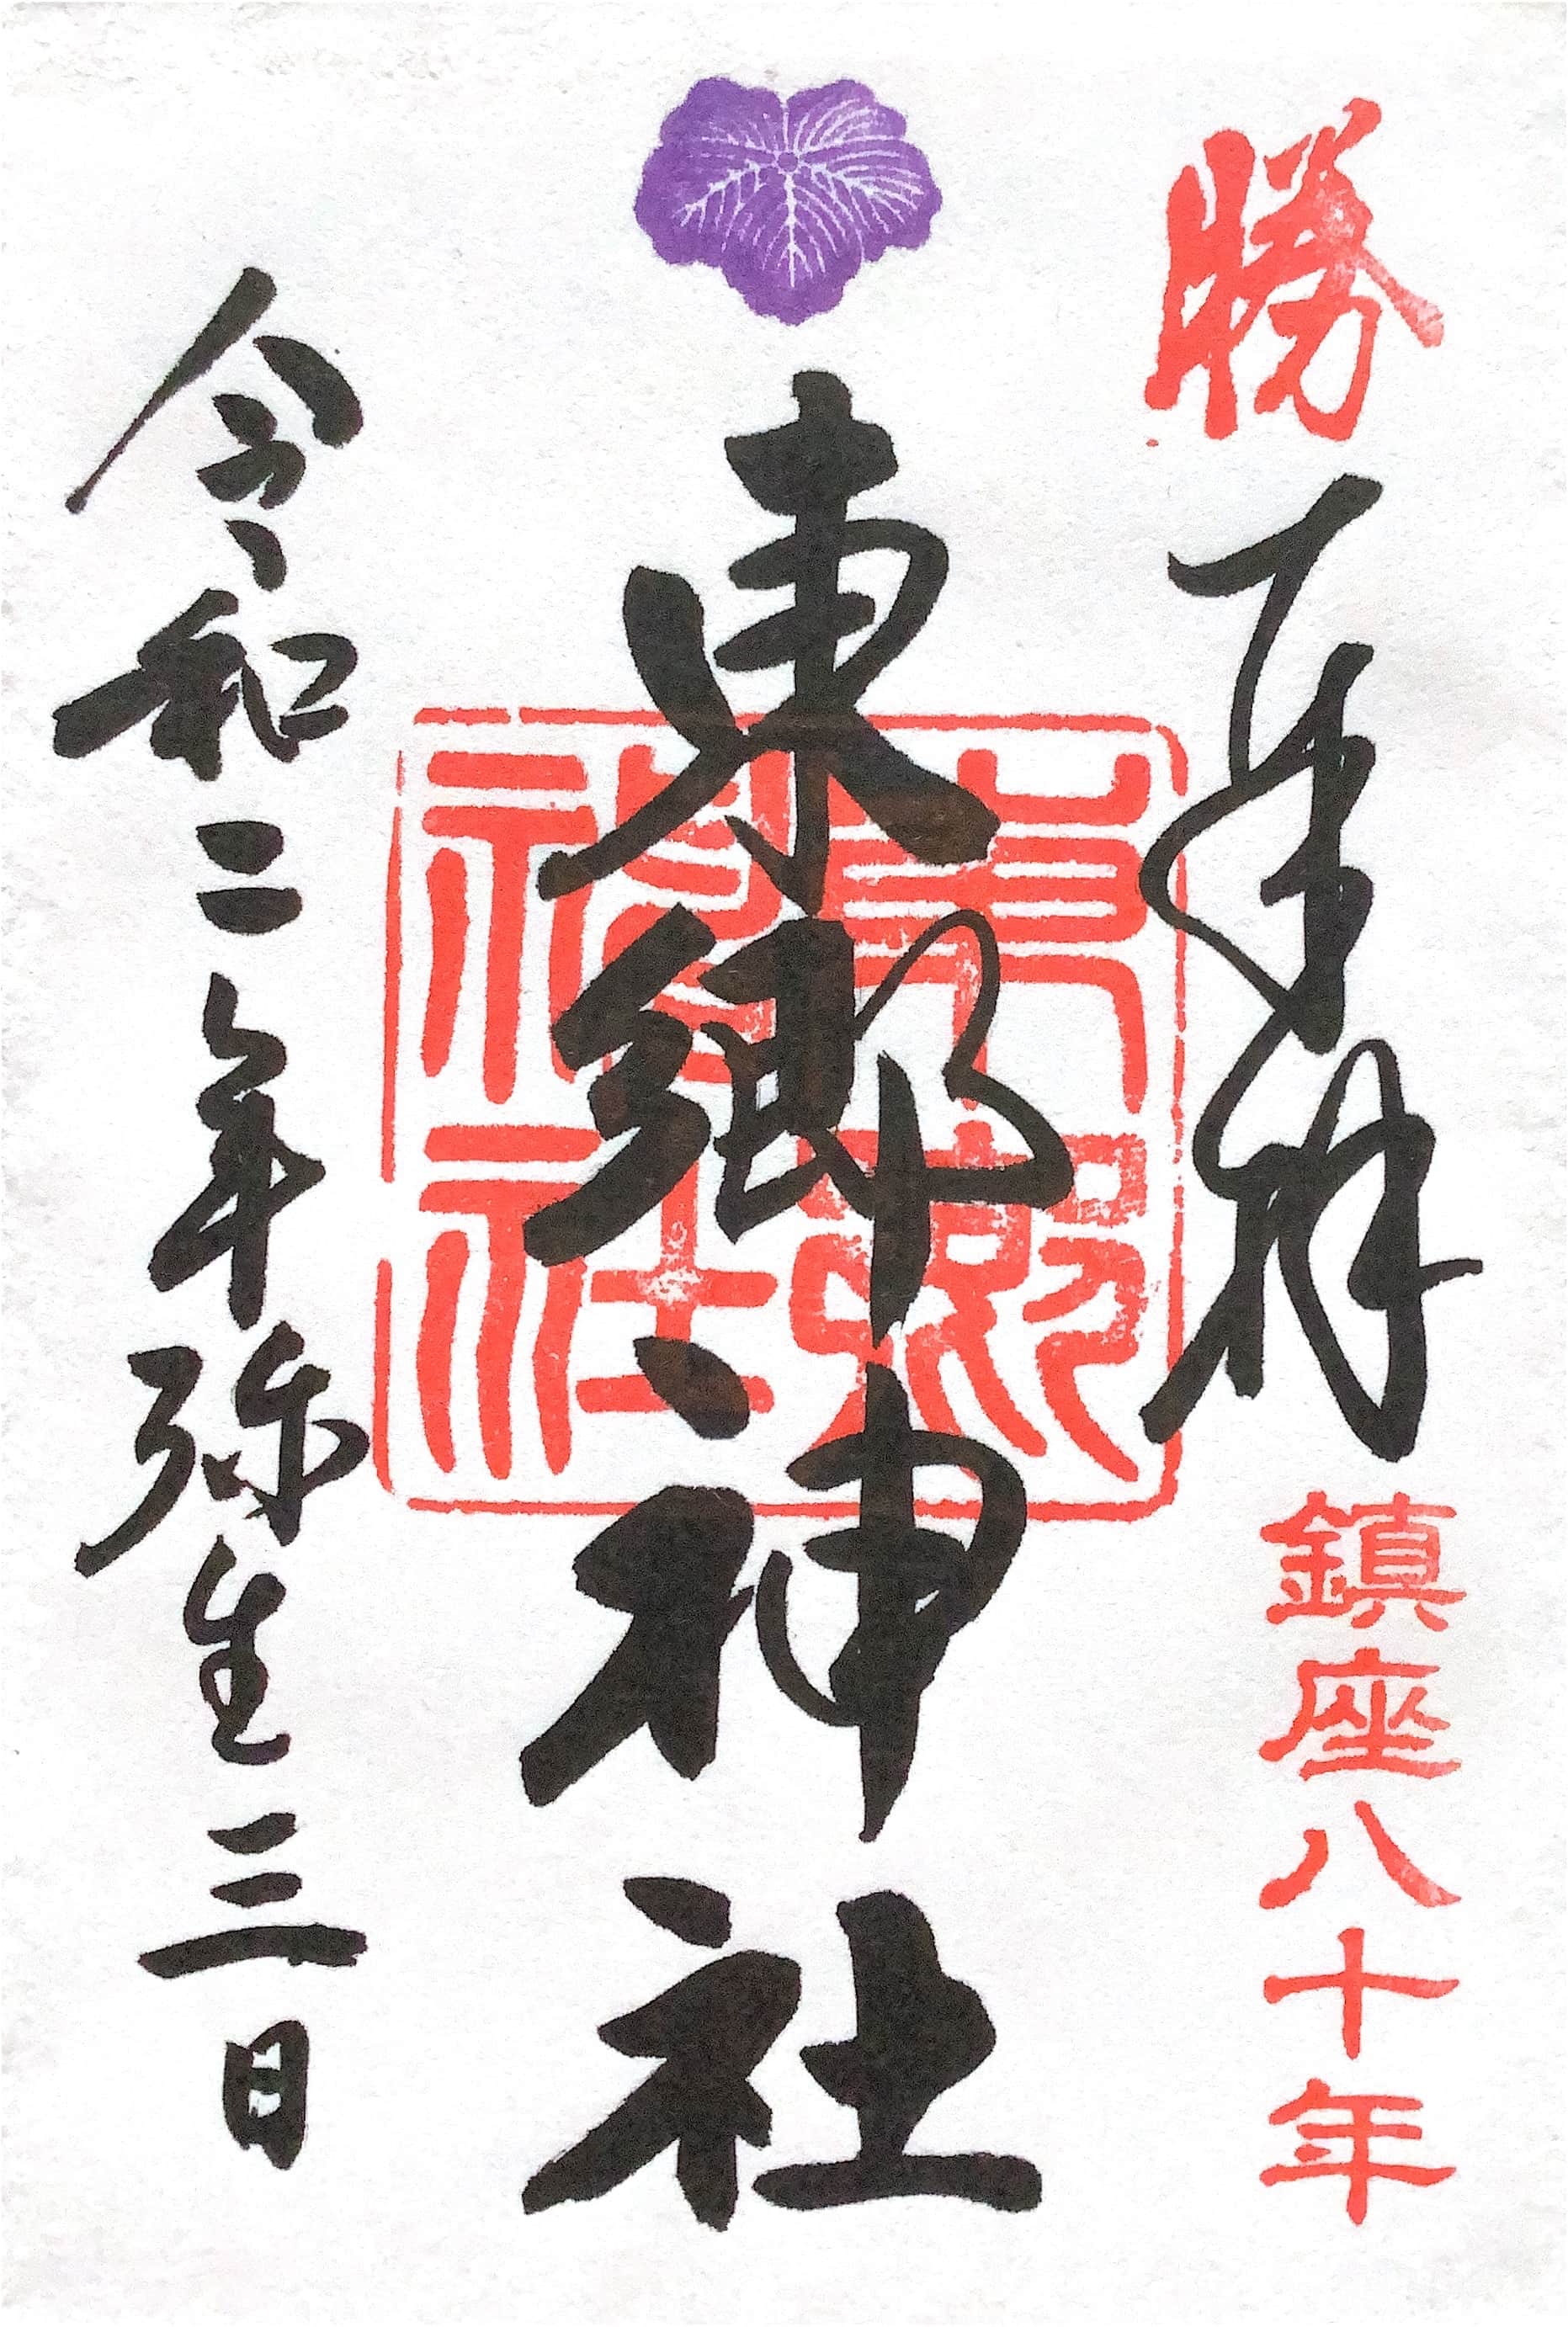 勝
奉拝
鎮座八十年
東郷神社
東郷神社
令和二年弥生三日